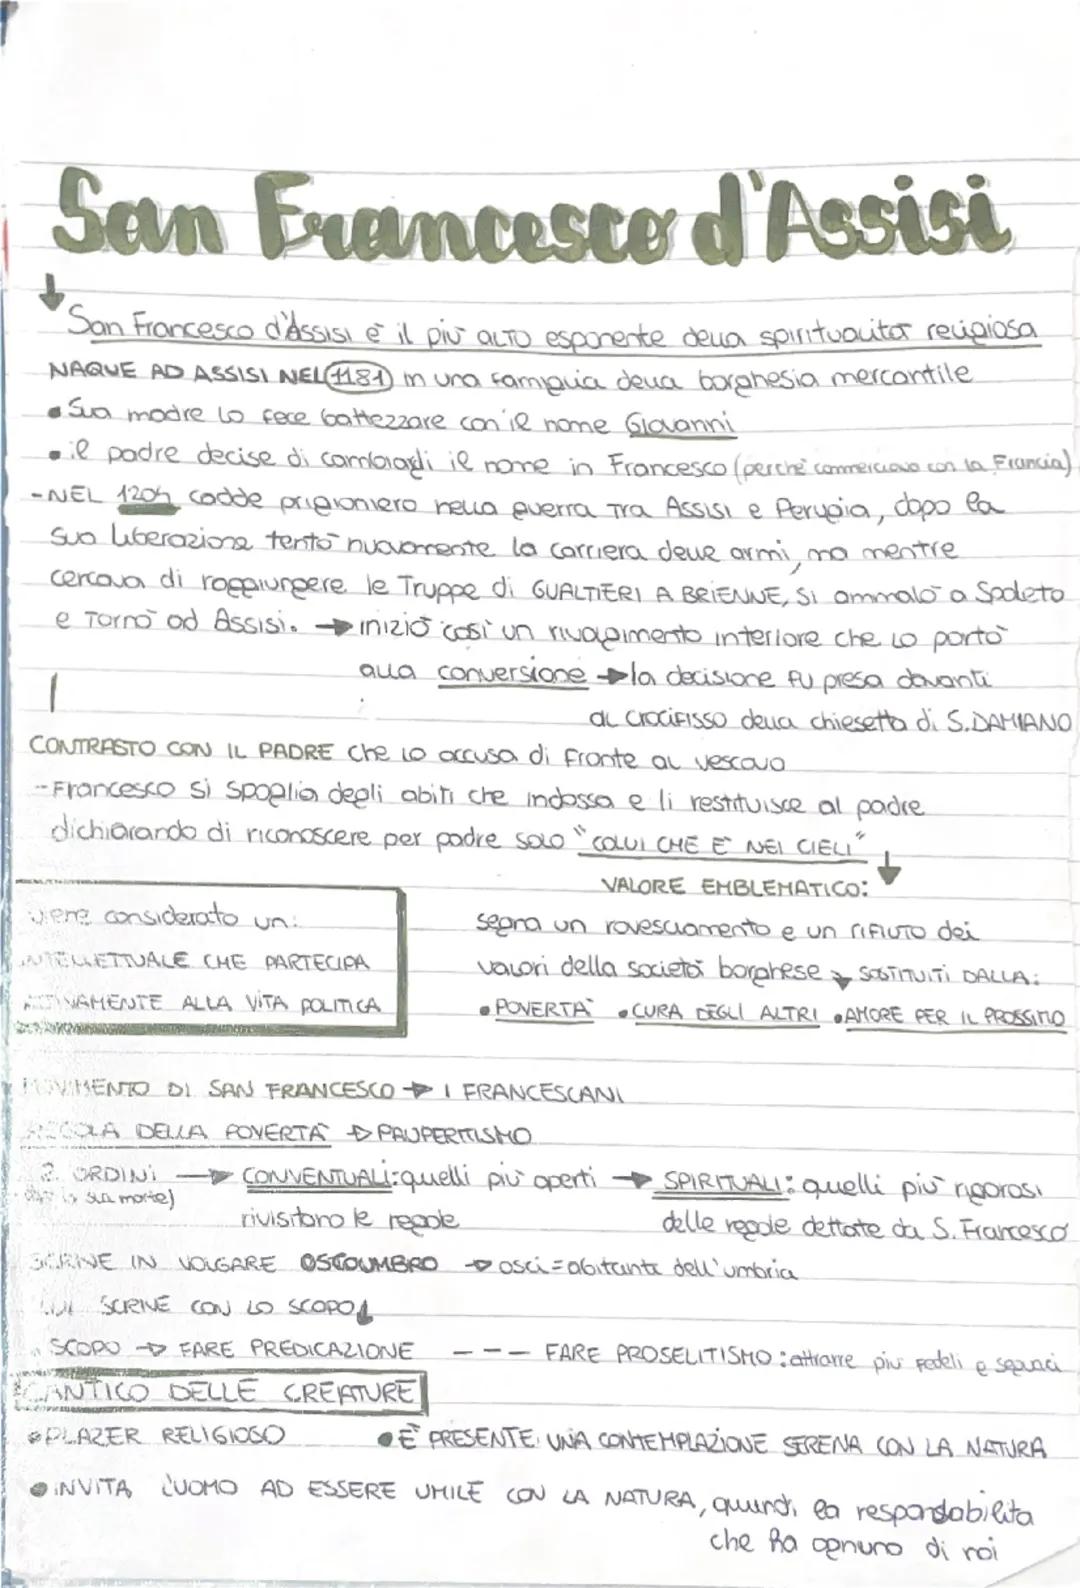 San Francesco d'Assisi
San Francesco d'Assisi è il più alto esponente della spiritualità religiosa
NAQUE AD ASSISI NEL 1181 in una famiglia della borghesia mercantile
• Sua madre lo fece battezzare con il nome Giovanni
• il padre decise di cambiargli il nome in Francesco (perché commerciava con la Francia)
- NEL 1204 cadde prigioniero nella guerra tra Assisi e Perugia, dopo la
sua liberazione tentò nuovamente la carriera delle armi, ma mentre
cercava di raggiungere le Truppe di GUALTIERI A BRIENNE, si ammalò a Spoleto
e Tornò ad Assisi. → iniziò così un rivolgimento interiore che lo portò
alla conversione → la decisione fu presa davanti
al crocifisso della chiesetta di S. DAMIANO
CONTRASTO CON IL PADRE che lo accusa di fronte al vescovo
- Francesco si spoglia degli abiti che indossa e li restituisce al padre
dichiarando di riconoscere per padre solo "COLUI CHE È NEI CIELI"
VALORE EMBLEMATICO:
segna un rovesciamento e un RIFIUTO dei
valori della società borghese → SOSTITUITI DALLA:
• POVERTÀ • CURA DEGLI ALTRI • AMORE PER IL PROSSIMO
viene considerato un:
INTELLETTUALE CHE PARTECIPA
ATTIVAMENTE ALLA VITA POLITICA
MOVIMENTO DI SAN FRANCESCO → I FRANCESCANI
REGOLA DELLA POVERTÀ → PAUPERTISMO
2 ORDINI → CONVENTUALI: quelli più aperti → SPIRITUALI: quelli più rigorosi
la sua morte) rivisitano le regole delle regole dettate da S. Francesco
SCRIVE IN VOLGARE OSCOUMBRO → osci = abitante dell'umbria
LUI SCRIVE CON LO SCOPO ↓
SCOPO → FARE PREDICAZIONE --- FARE PROSELITISMO: attrarre più fedeli e seguaci
CANTICO DELLE CREATURE
• PLAZER RELIGIOSO • È PRESENTE UNA CONTEMPLAZIONE SERENA CON LA NATURA
• INVITA L'UOMO AD ESSERE UMILE CON LA NATURA, quindi la responsabilita
che ha ognuno di noi